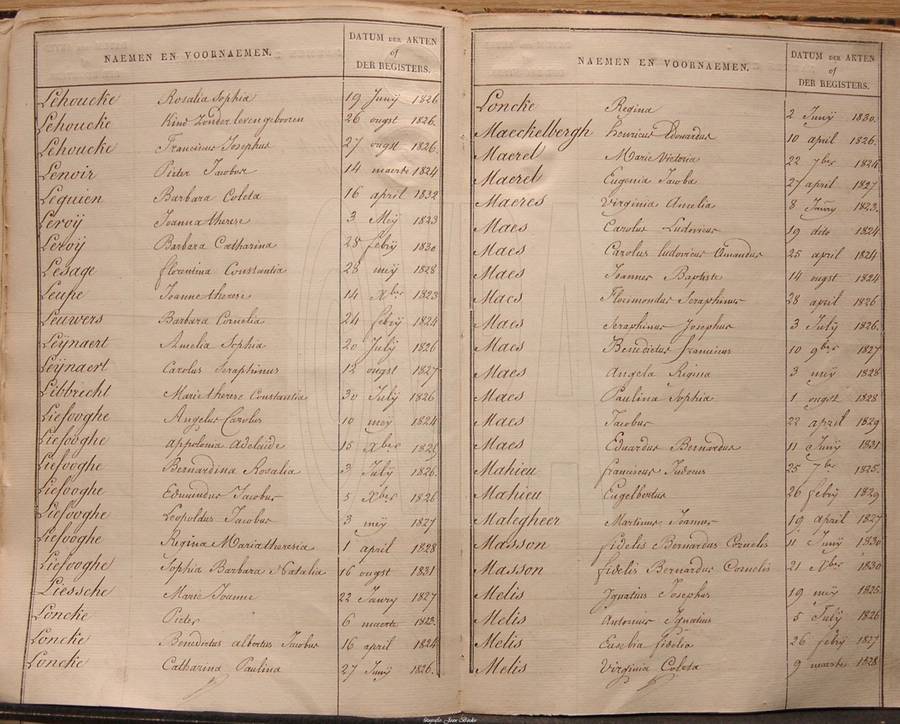 NAEMEN EN VOORNAEMEN.
DATUM DER AKTEN
of
DER REGISTERS.
Lehoucke Rosalia Sophia 19 Junij 1826
Lehoucke Kind Zonder leven gebooren 26 ougst 1826.
Lehoucke Franciscus Josephus 27 ougst 1826.
Lenoir Pieter Jacobus 14 maerte 1824
Lequien Barbara Coleta 16 april 1832
Leroij Joanna therese 3 Meij 1823
Leroij Barbara Catharina 28 febrij 1830
Lesage florentina Constantia 28 meij 1828
Leupe Joanne therese 14 Xber 1823
Leuwers Barbara Cornelia 24 febrij 1824
Leijnaert Amelia Sophia 20 Julij 1826
Leijnaert Carolus Seraphinus 12 ougst 1827
Libbrecht Marie therese Constantia 30 Julij 1826
Liefooghe Angelus Carolus 10 meij 1824
Liefooghe Appolonia Adelaide 15 Xber
Liefooghe Bernardina Rosalia 3 July 1826.
Liefooghe Edmundus Jacobus 5 Xber 1826
Liefooghe Leopoldus Jacobus 3 meij 1827
Liefooghe Regina Maria theresia 1 april 1828
Liefooghe Sophia Barbara Natalia 16 ougst 1831
Liessche Marie Joanne 22 Janry 1827
Loncke Pieter 6 maerte 1823.
Loncke Benedictus albertus Jacobus 16 april 1824
Loncke Catharina Paulina 27 Junij 1826.
NAEMEN EN VOORNAEMEN.
DATUM DER AKTEN
of
DER REGISTERS.
Loncke Regina 2 Junij 1830.
Maeckelbergh henricus Edowardus 10 april 1826.
Maerel Marie Victoria 22 7ber 1824
Maerel Eugenia Jacoba 27 april 1827
Maeres Virginia Amelia 8 Janry 1823.
Maes Carolus Ludovicus 19 dito 1824
Maes Carolus ludovicus Amandus 25 april 1824
Maes Joannes Baptiste 14 ougst 1824
Maes Florimondus Seraphinus 28 april 1826
Maes Seraphinus Josephus 3 July 1826.
Maes Benedictus franciscus 10 9ber 1827
Maes Angela Regina 3 meij 1828
Maes Paulina Sophia 1 ougst 1828
Maes Jacobus 22 april 1829
Maes Eduardus Bernardus 11 Junij 1831.
Mahieu franciscus Judocus 25 7ber 1825.
Mahieu Engelbertus 26 febrij 1829
Malegheer Martinus Joannes 19 april 1827
Masson fidelis Bernardus Cornelis 11 Junij 1830
Masson fidelis Bernardus Cornelis 21 1830
Melis Ignatius Josephus 19 meij 1825.
Melis Antonius Ignatius 5 July 1826
Melis Eusebia fidelia 26 febrij 1827
Melis Virginia Coleta 9 maerte 1828